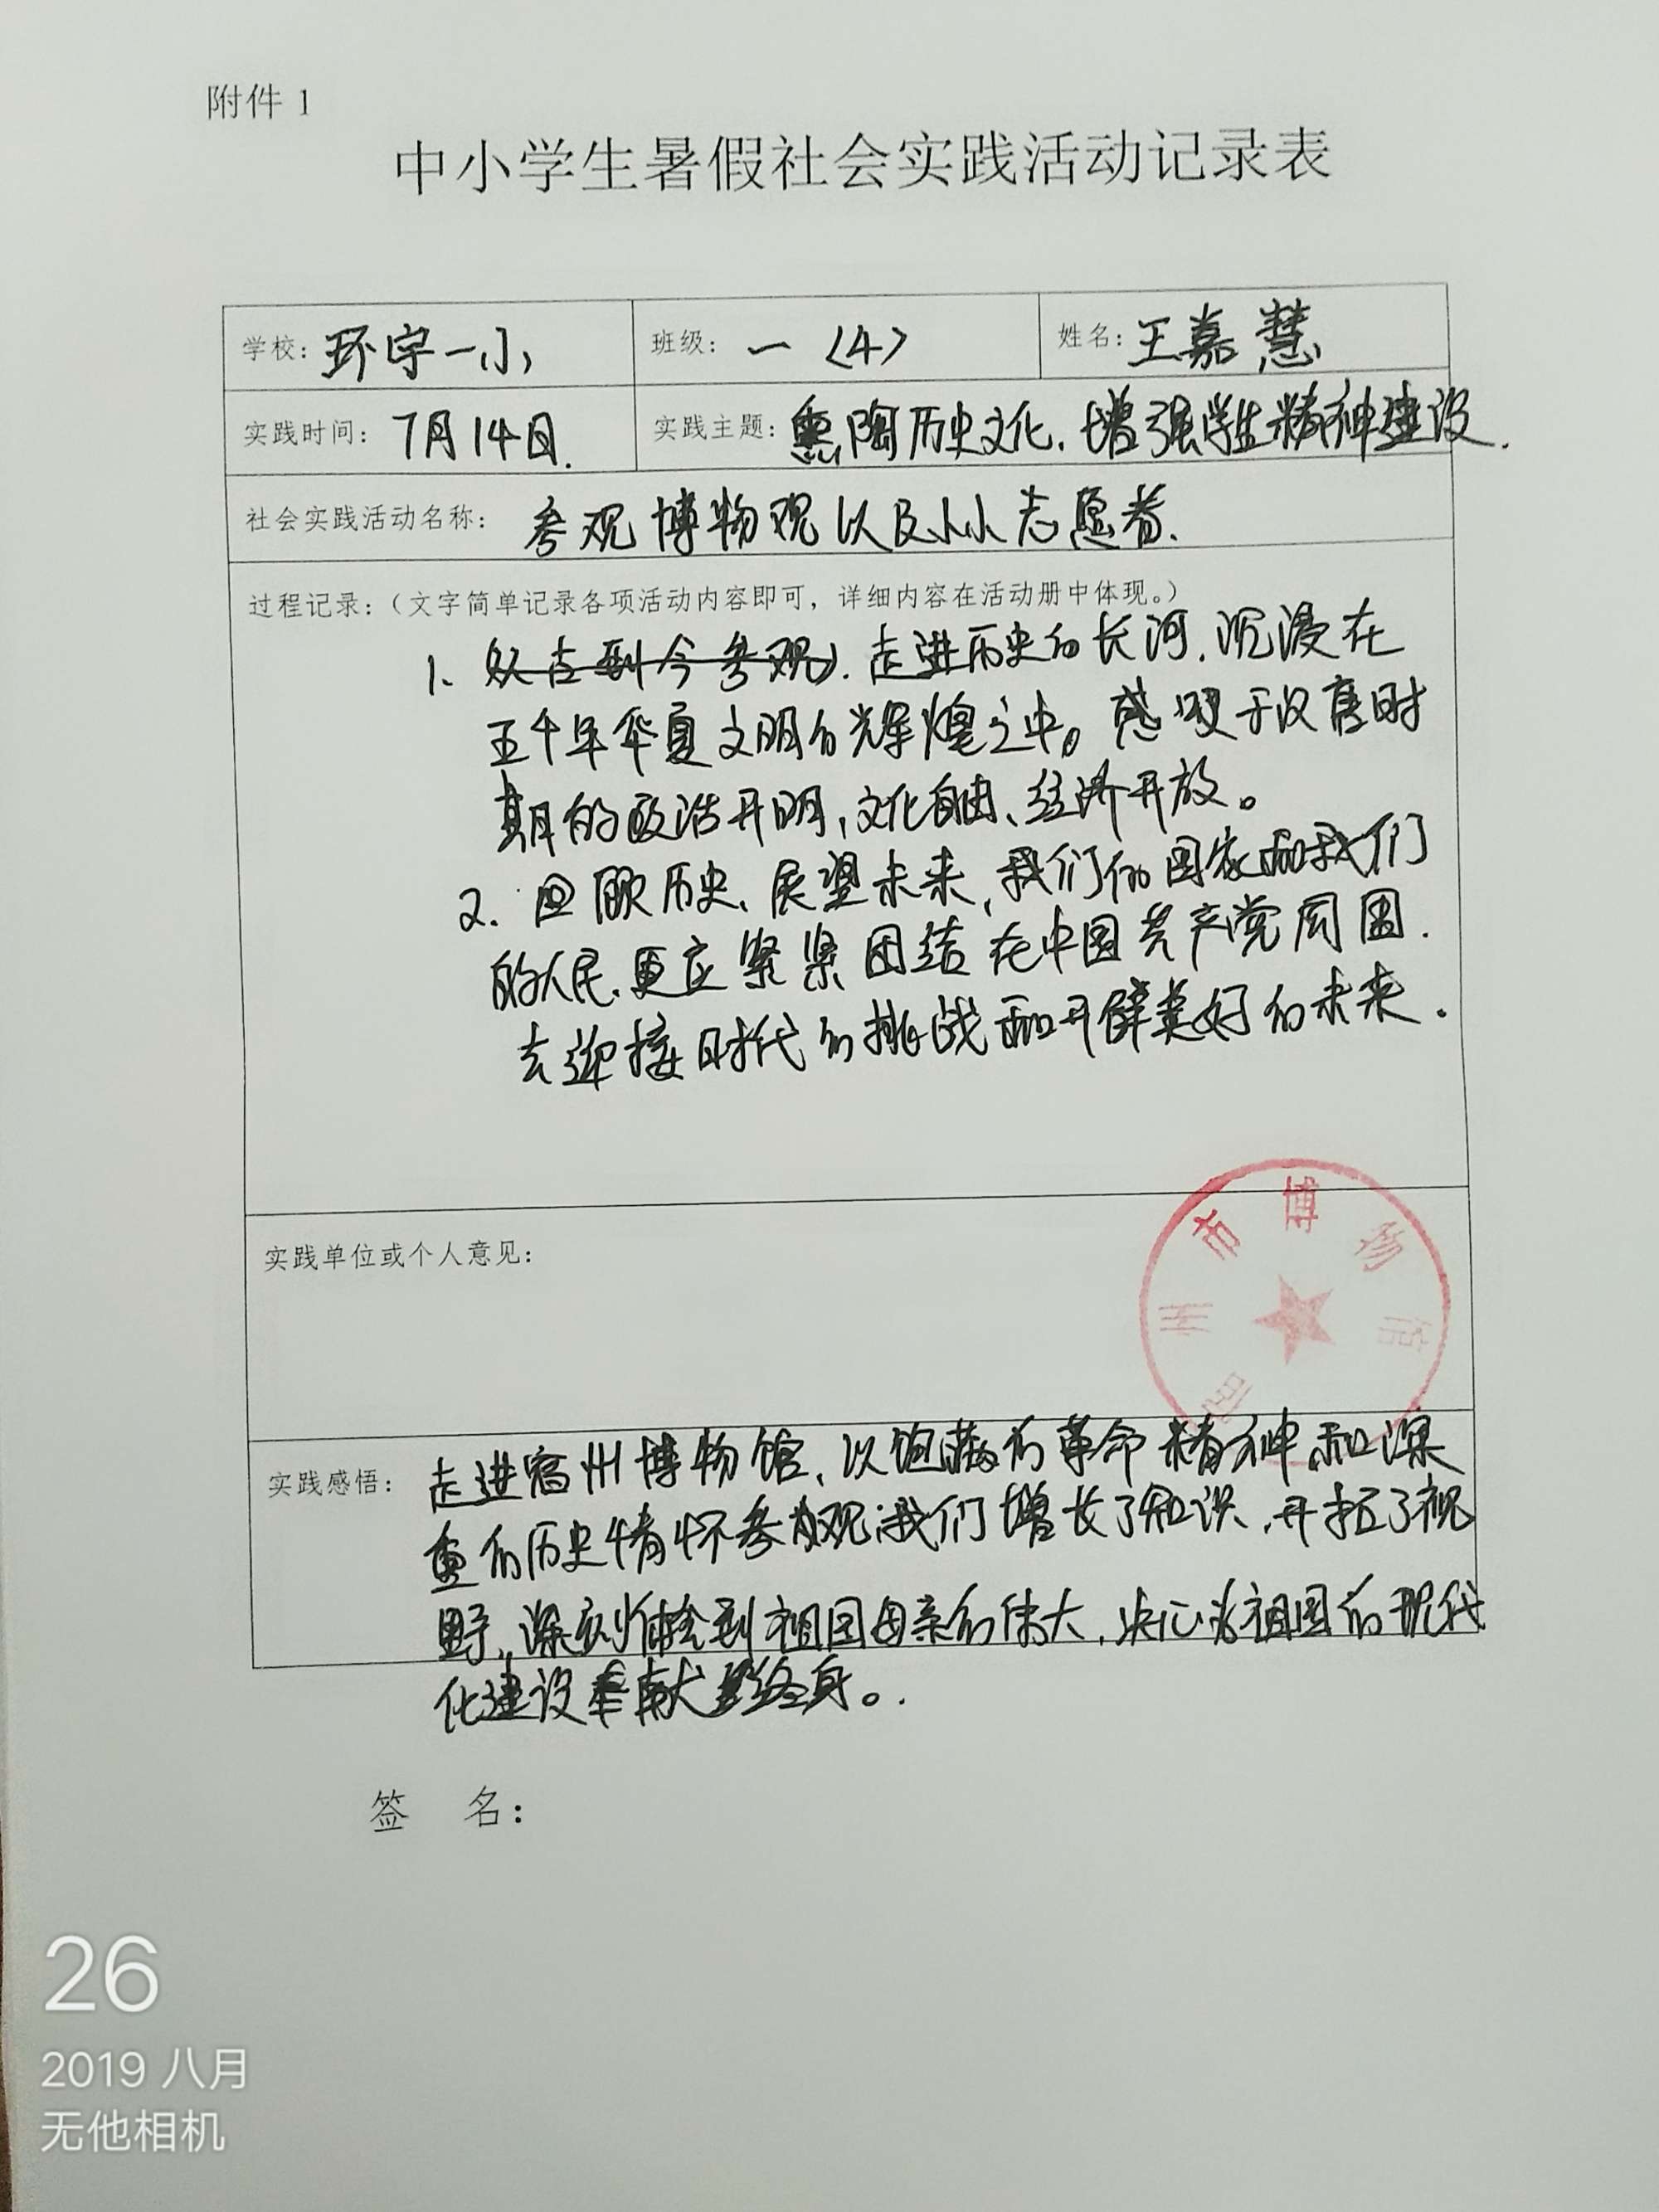 附件 1
中小学生暑假社会实践活动记录表
学校: 环宇一小 班级: 一〈4〉 姓名: 王嘉慧
实践时间: 7月14日. 实践主题: 熏陶历史文化、增强学生精神建设.
社会实践活动名称: 参观博物观以及小小志愿者.
过程记录:(文字简单记录各项活动内容即可，详细内容在活动册中体现。)
1、从古到今参观). 走进历史的长河，沉浸在
五千年华夏文明的辉煌之中。感叹于汉唐时
期的政治开明，文化自由、经济开放。
2. 回顾历史、展望未来，我们的国家和我们
的人民，更应紧紧团结在中国共产党周围.
去迎接时代的挑战和开辟美好的未来.
实践单位或个人意见:
宿州市博物馆
实践感悟: 走进宿州博物馆、以饱满的革命精神和深
重的历史情怀参观,我们增长了知识,开拓了视
野,深刻体会到祖国母亲的伟大,决心为祖国的现代
化建设奉献终身。.
签 名:
26
2019 八月
无他相机